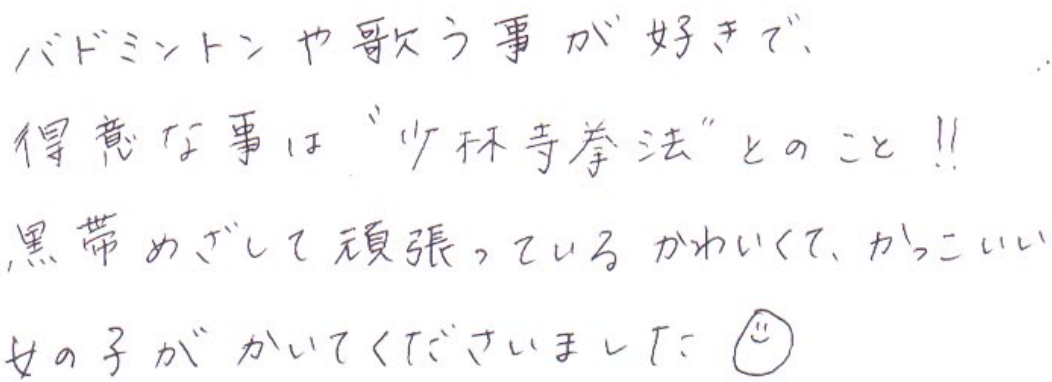 バドミントンや歌う事が好きで、
得意な事は〝少林寺拳法〟とのこと!!
黒帯めざして頑張っているかわいくて、かっこいい
女の子がかいてくださいました